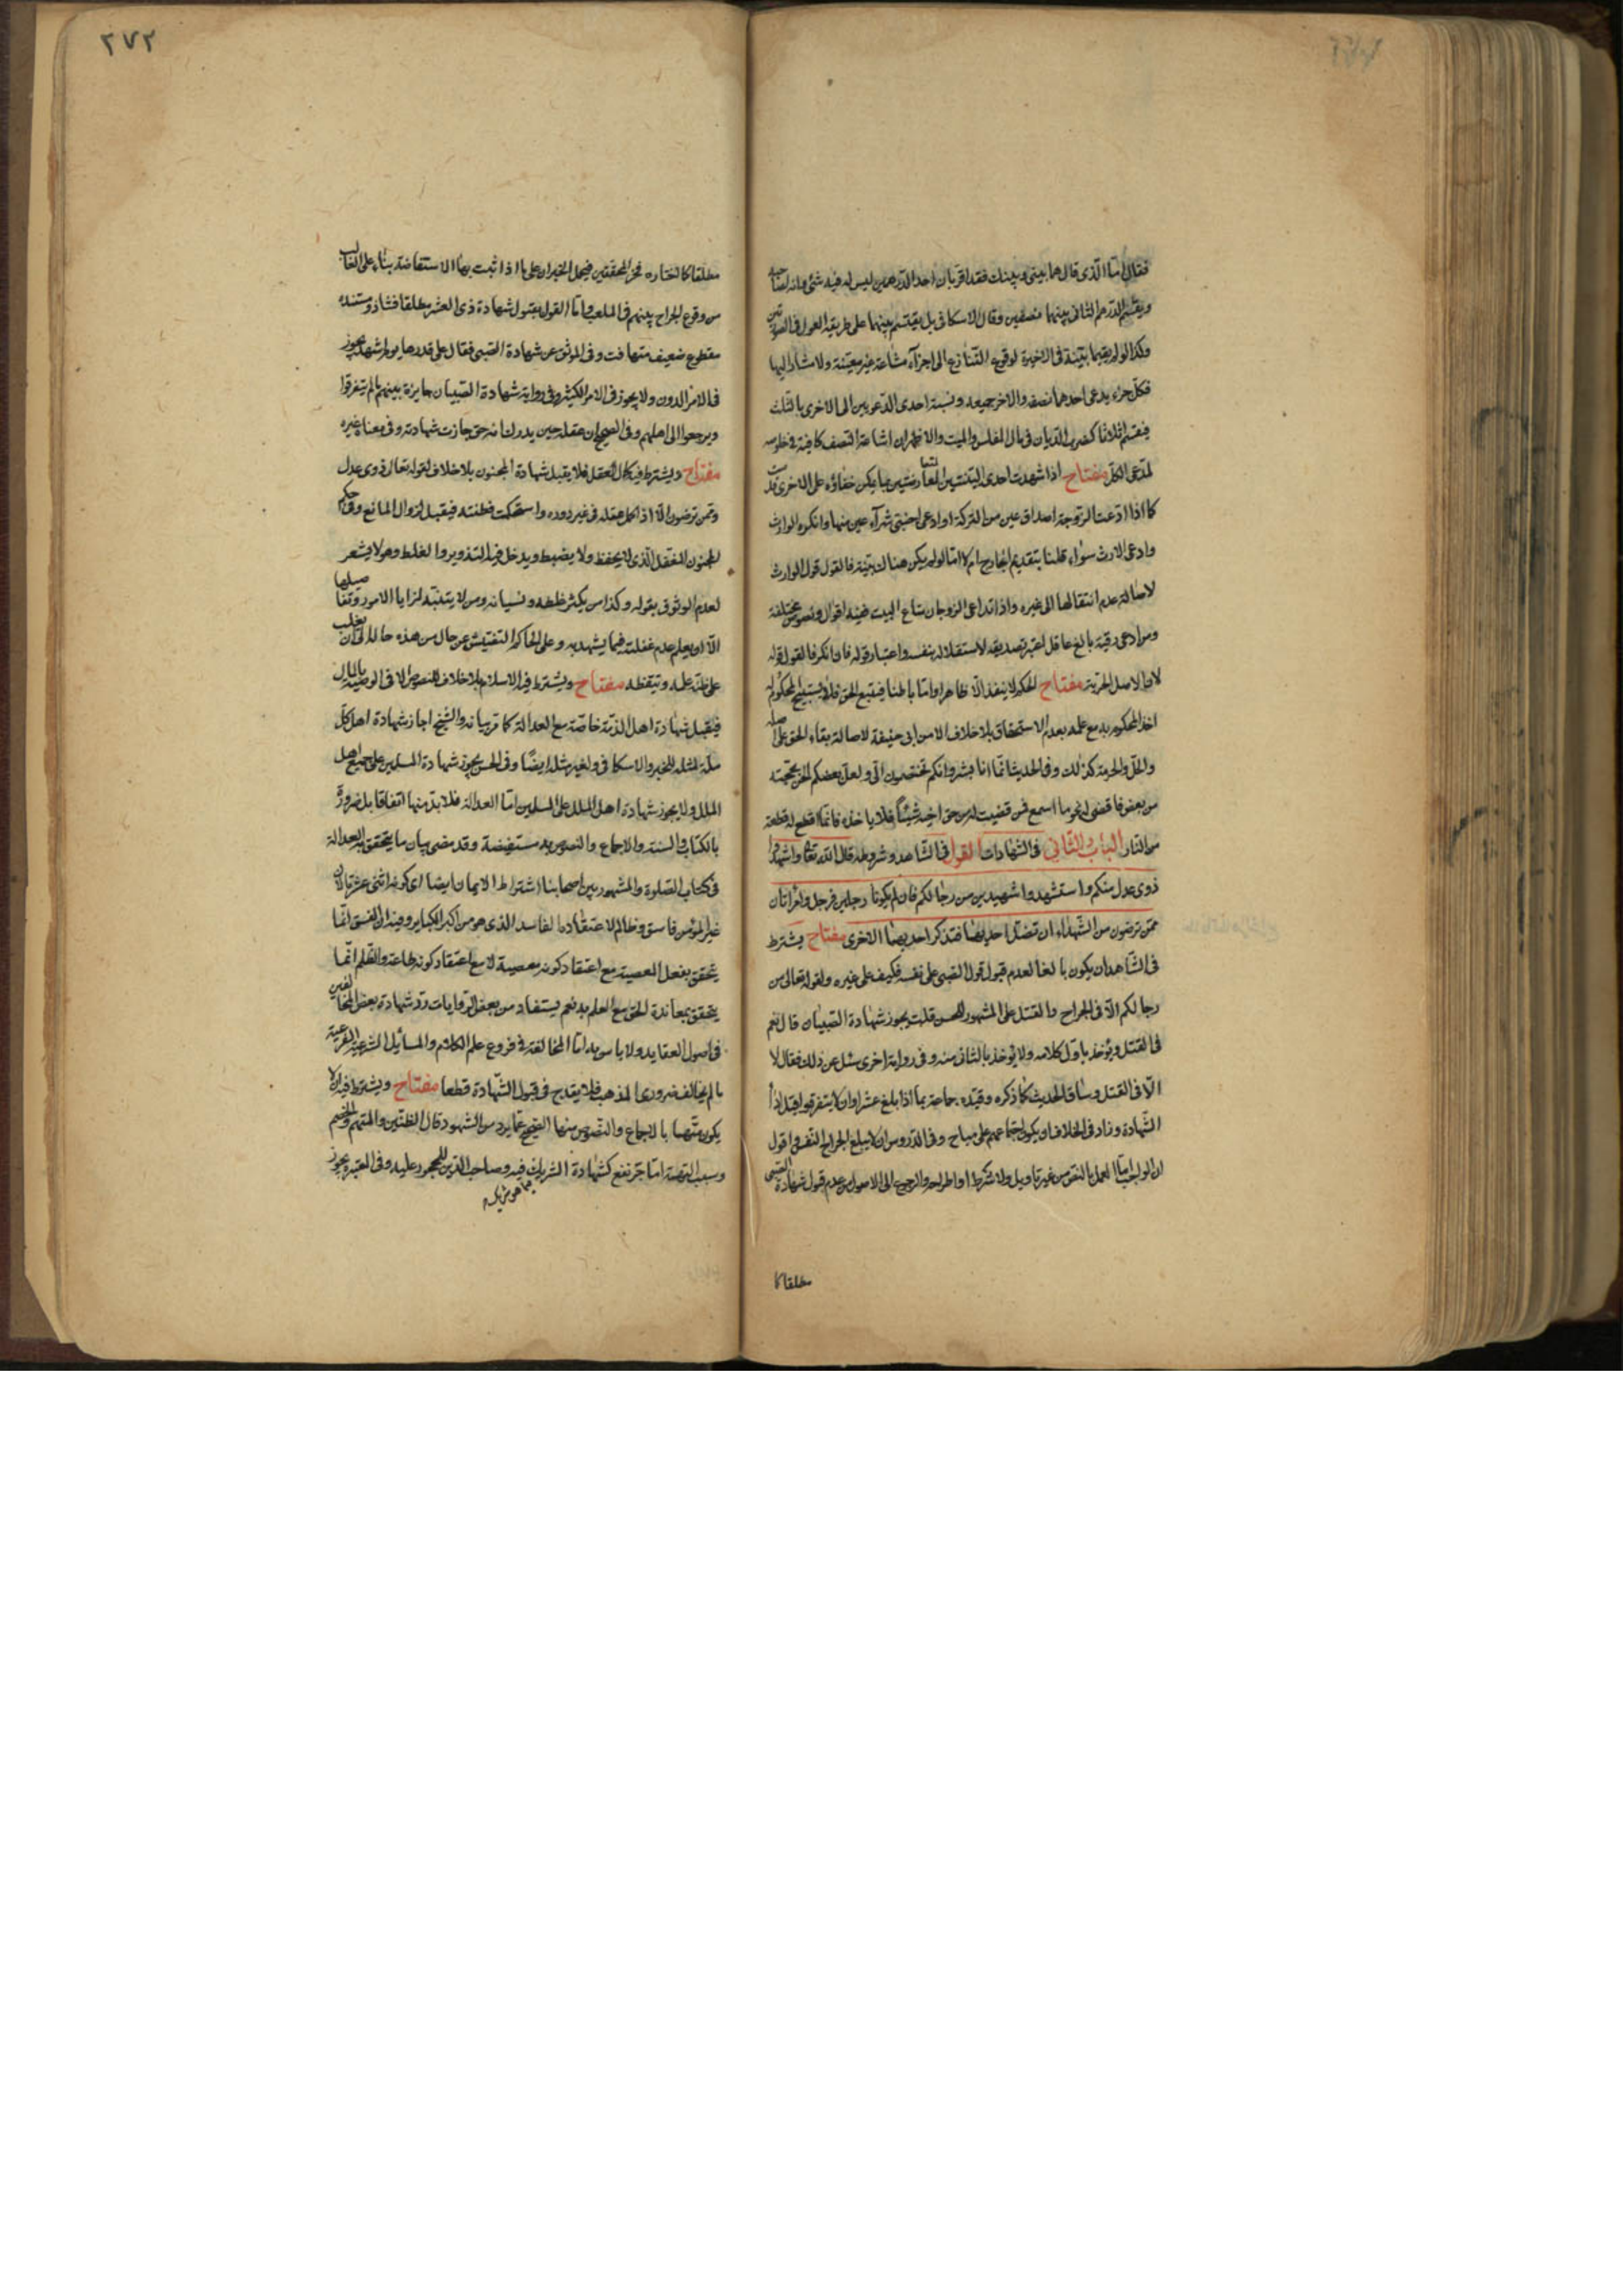 فقال اما الذى قال هما بينى وبينك فقد اقر بان احد الدرهمين ليس له فيه شئ وانه لصاحبه
ويقسم الدرهم الثانى بينهما نصفين وقال الاسكافى بل يقتسم بينهما على طريقة العول فى الصورتين
وكذا لو لم يقيما بينة فى الاخيرة لوقوع التنازع الى اجزاء مشاعة غير معينة ولا مشار اليها
فكل جزء يدعى احدهما نصفه والاخر جميعه ونسبة احدى الدعويين الى الاخرى بالثلث
فيقسم اثلاثا كضرب الديان فى مال المفلس والميت والاظهر ان اشاعة النصف كافية فى خلوصه
لمدعى الكل مفتاح اذا شهدت احدى البينتين المتعارضتين بما يمكن خفاؤه على الاخرى قدمت
كما اذا ادعت الزوجة اصداق عين من التركة او ادعى اجنبى شراء عين منها وانكره الوارث
وادعى الارث سواء قلنا بتقديم الخارج ام لا اما لو لم يكن هناك بينة فالقول قول الوارث
لاصالة عدم انتقالها الى غيره واذا تداعى الزوجان متاع البيت ففيه اقوال ونصوص مختلفة
ومن ادعى رقية بالغ عاقل اعتبر تصديقه لاستقلاله بنفسه واعتبار قوله فان انكر فالقول قوله
لان الاصل الحرية مفتاح الحكم لا ينفذ الا ظاهرا واما باطنا فيتبع الحق فلا يستبيح المحكوم له
اخذ المحكوم به مع علمه بعدم الاستحقاق بلا خلاف الا من ابى حنيفة لاصالة بقاء الحق على اصله
والحل والحرمة كذلك وفى الحديث انما انا بشر وانكم تختصمون الى ولعل بعضكم الحن بحجته
من بعض فاقضى له نحو ما اسمع فمن قضيت له من حق اخيه شيئا فلا ياخذه فانما اقطع له قطعة
من النار الباب الثانى فى الشهادات القول فى الشاهد وشروطه قال الله تعالى واشهدوا
ذوى عدل منكم واستشهدوا شهيدين من رجالكم فان لم يكونا رجلين فرجل وامرأتان
ممن ترضون من الشهداء ان تضل احديهما فتذكر احديهما الاخرى مفتاح يشترط
فى الشاهد ان يكون بالغا لعدم قبول قول الصبى على نفسه فكيف على غيره ولقوله تعالى من
رجالكم الا فى الجراح والقتل على المشهور للحسن قلت يجوز شهادة الصبيان قال نعم
فى القتل ويؤخذ باول كلامه ولا يؤخذ بالثانى منه وفى رواية اخرى سئل عن ذلك فقال لا
الا فى القتل وساق الحديث كما ذكره وقيده جماعة بما اذا بلغ عشرا وان لا يتفرقوا قبل اداء
الشهادة وزاد فى الخلاف او يكون اجتماعهم على مباح وفى الدروس ان لا يبلغ الجراح النفس واقول
ان الواجب اما العمل بالنص من غير تاويل ولا شرط او اطراحه والرجوع الى الاصول من عدم قبول شهادة الصبى
مطلقا كا
٢٧٢
مطلقا كما اختاره فخر المحققين فيحمل الخبران على ما اذا ثبت بها الاستفاضة بناء على الغالب
من وقوع الجراح بينهم فى الملعب واما القول بقبول شهادة ذى العشر مطلقا فشاذ ومستنده
مقطوع ضعيف متهافت وفى الموثق عن شهادة الصبى فقال على قدرها يوم اشهد يجوز
فى الامر الدون ولا يجوز فى الامر الكثير وفى رواية شهادة الصبيان جايزة بينهم ما لم يتفرقوا
ويرجعوا الى اهلهم وفى الصحيح ان عقله حين يدرك انه حق جازت شهادته وفى معناه غيره
مفتاح ويشترط فيه كمال العقل فلا يقبل شهادة المجنون بلا خلاف لقوله تعالى ذوى عدل
وممن ترضون الا اذا كمل عقله فى غير دوره واستحكمت فطنته فيقبل لزوال المانع وفى حكم
المجنون المغفل الذى لا يحفظ ولا يضبط ويدخل فيه التذوير والغلط وهو لا يشعر
لعدم الوثوق بقوله وكذا من يكثر غلطه ونسيانه ومن لا يتنبه لمزايا الامور وتفاصيلها
الا ان يعلم عدم غفلته فيما يشهد به وعلى الحاكم التفتيش عن حال من هذه حاله الى ان يغلب
على ظنه علمه وتيقظه مفتاح ويشترط فيه الاسلام بلا خلاف للنصوص الا فى الوصية بالمال
فيقبل شهادة اهل الذمة خاصة مع العدالة كما مر بيانه والشيخ اجاز شهادة اهل كل
ملة لمثله للخبر والاسكافى ولغير مثله ايضا وفى الحسن يجوز شهادة المسلمين على جميع اهل
الملل ولا يجوز شهادة اهل الملل على المسلمين اما العدالة فلا بد منها اتفاقا بل ضرورة
بالكتاب والسنة والاجماع والنصوص به مستفيضة وقد مضى بيان ما يتحقق به العدالة
فى كتاب الصلوة والمشهور بين اصحابنا اشتراط الايمان ايضا اى كونه اثنى عشريا لان
غير المؤمن فاسق وظالم لاعتقاده الفاسد الذى هو من اكبر الكباير وفيه ان الفسق انما
يتحقق بفعل المعصية مع اعتقاد كونه معصية لا مع اعتقاد كونه طاعة والظلم انما
يتحقق بمعاندة الحق مع العلم به نعم يستفاد من بعض الروايات رد شهادة بعض المخالفين
فى اصول العقايد ولا باس به اما المخالفة فى فروع علم الكلام والمسائل الشرعية الفرعية
ما لم يخالف ضرورى المذهب فلا يقدح فى قبول الشهادة قطعا مفتاح ويشترط فيه ان لا
يكون متهما بالاجماع والنصوص منها الصحيح عما يرد من الشهود قال الظنين والمتهم والخصم
وسبب التهمة اما جر نفع كشهادة الشريك فيه وصاحب الدين للمحجور عليه وفى المعتبرة يجوز